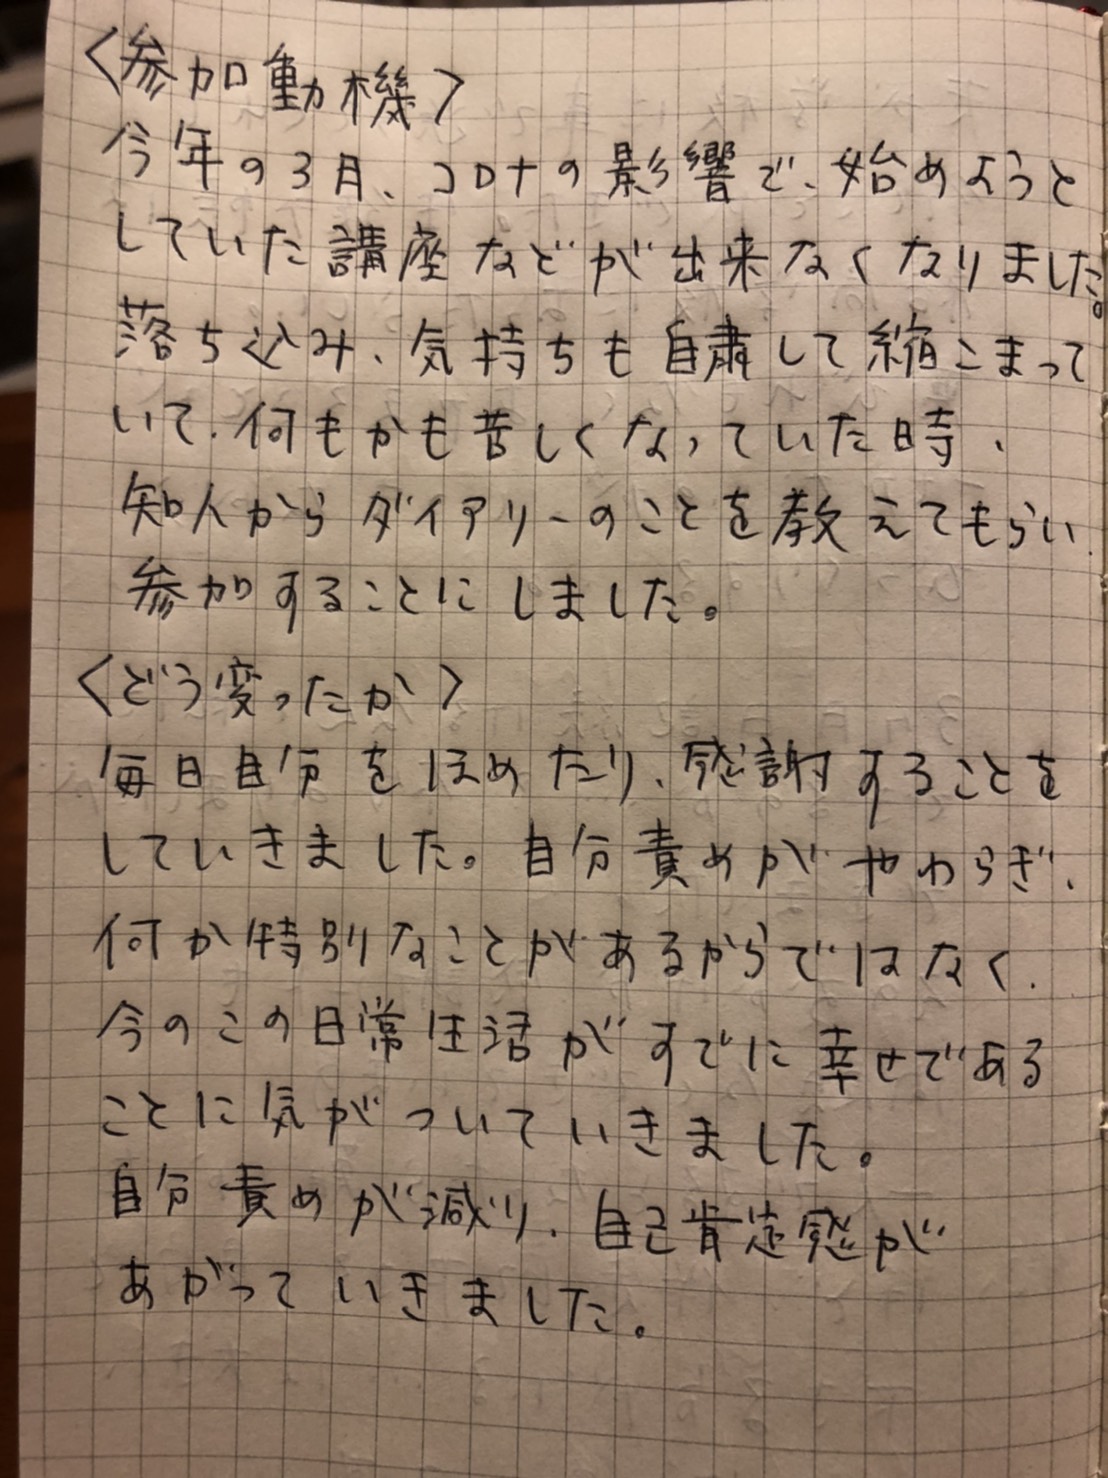 〈参加動機〉
今年の3月、コロナの影響で、始めようと
していた講座などが出来なくなりました。
落ち込み、気持ちも自粛して縮こまって
いて、何もかも苦しくなっていた時、
知人からダイアリーのことを教えてもらい、
参加することにしました。
〈どう変ったか〉
毎日自分をほめたり、感謝することを
していきました。自分責めがやわらぎ、
何か特別なことがあるからではなく、
今のこの日常生活がすでに幸せである
ことに気がついていきました。
自分責めが減り、自己肯定感が
あがっていきました。